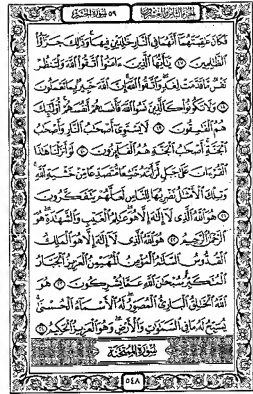 الجزء الثامن والعشرون ٥٩ سورة الحشر
فَكَانَ عَٰقِبَتَهُمَآ أَنَّهُمَا فِي ٱلنَّارِ خَٰلِدَيْنِ فِيهَا وَذَٰلِكَ جَزَٰٓؤُا۟
ٱلظَّٰلِمِينَ ١٧ يَٰٓأَيُّهَا ٱلَّذِينَ ءَامَنُوا۟ ٱتَّقُوا۟ ٱللَّهَ وَلْتَنظُرْ
نَفْسٌ مَّا قَدَّمَتْ لِغَدٍ وَٱتَّقُوا۟ ٱللَّهَ إِنَّ ٱللَّهَ خَبِيرٌۢ بِمَا تَعْمَلُونَ
١٨ وَلَا تَكُونُوا۟ كَٱلَّذِينَ نَسُوا۟ ٱللَّهَ فَأَنسَىٰهُمْ أَنفُسَهُمْ أُو۟لَٰٓئِكَ
هُمُ ٱلْفَٰسِقُونَ ١٩ لَا يَسْتَوِىٓ أَصْحَٰبُ ٱلنَّارِ وَأَصْحَٰبُ
ٱلْجَنَّةِ أَصْحَٰبُ ٱلْجَنَّةِ هُمُ ٱلْفَآئِزُونَ ٢٠ لَوْ أَنزَلْنَا هَٰذَا
ٱلْقُرْءَانَ عَلَىٰ جَبَلٍ لَّرَأَيْتَهُۥ خَٰشِعًا مُّتَصَدِّعًا مِّنْ خَشْيَةِ ٱللَّهِ
وَتِلْكَ ٱلْأَمْثَٰلُ نَضْرِبُهَا لِلنَّاسِ لَعَلَّهُمْ يَتَفَكَّرُونَ
٢١ هُوَ ٱللَّهُ ٱلَّذِى لَآ إِلَٰهَ إِلَّا هُوَ عَٰلِمُ ٱلْغَيْبِ وَٱلشَّهَٰدَةِ هُوَ
ٱلرَّحْمَٰنُ ٱلرَّحِيمُ ٢٢ هُوَ ٱللَّهُ ٱلَّذِى لَآ إِلَٰهَ إِلَّا هُوَ ٱلْمَلِكُ
ٱلْقُدُّوسُ ٱلسَّلَٰمُ ٱلْمُؤْمِنُ ٱلْمُهَيْمِنُ ٱلْعَزِيزُ ٱلْجَبَّارُ
ٱلْمُتَكَبِّرُ سُبْحَٰنَ ٱللَّهِ عَمَّا يُشْرِكُونَ ٢٣ هُوَ
ٱللَّهُ ٱلْخَٰلِقُ ٱلْبَارِئُ ٱلْمُصَوِّرُ لَهُ ٱلْأَسْمَآءُ ٱلْحُسْنَىٰ
يُسَبِّحُ لَهُۥ مَا فِى ٱلسَّمَٰوَٰتِ وَٱلْأَرْضِ وَهُوَ ٱلْعَزِيزُ ٱلْحَكِيمُ ٢٤
سُورَةُ المُمْتَحنَة
٥٤٨